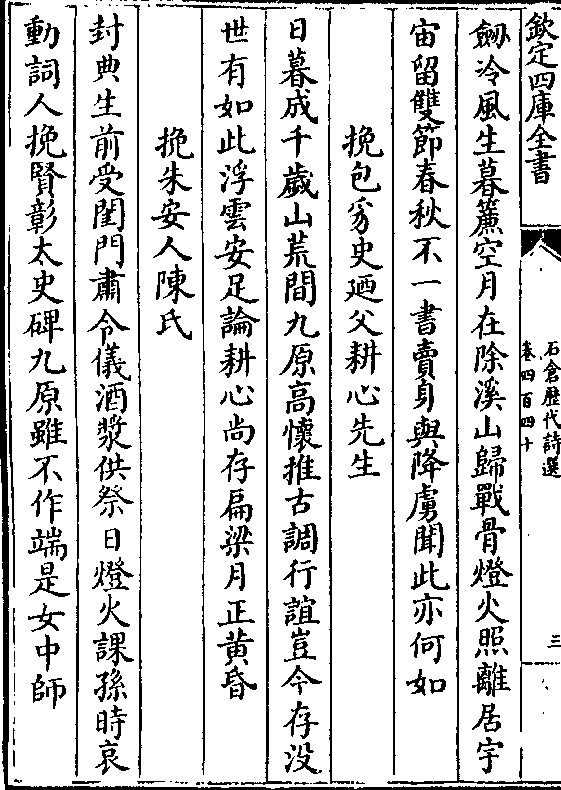 欽定四庫全書
石倉歴代詩選
卷四百四十
三
劔冷風生暮簾空月在除溪山歸戰骨燈火照離居宇
宙留雙節春秋不一書賣身與降虜聞此亦何如
挽包豸史廼父耕心先生
日暮成千歲山荒間九原高懷推古調行誼豈今存没
世有如此浮雲安足論耕心尚存扁梁月正黄昏
挽朱安人陳氏
封典生前受閨門肅令儀酒漿供祭日燈火課孫時哀
動詞人挽賢彰太史碑九原雖不作端是女中師